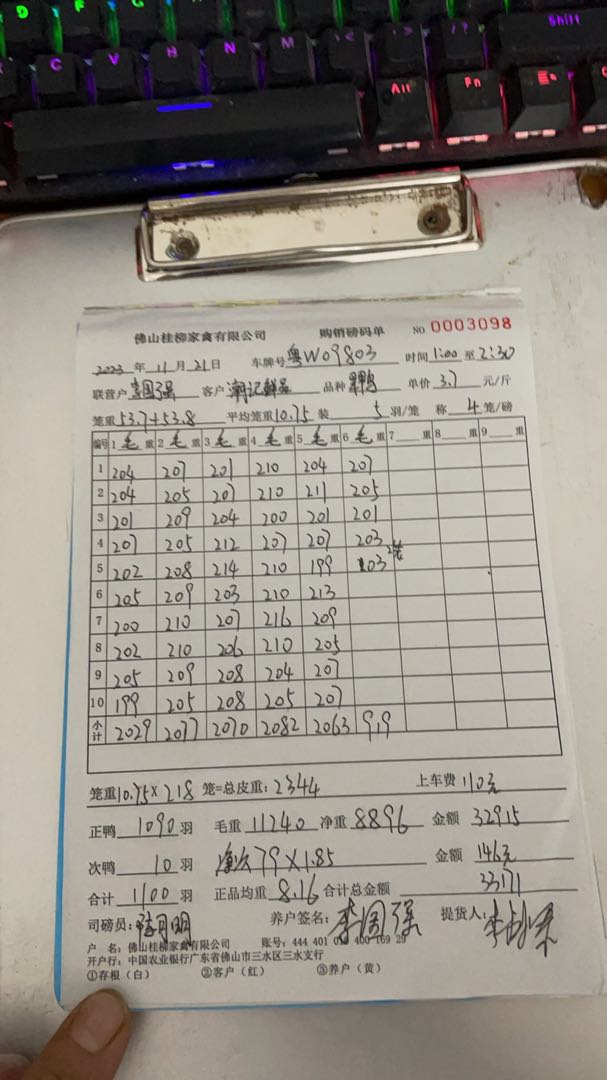 Shift
C V B N M
Alt Fn
佛山桂柳家禽有限公司 购销磅码单 NO 0003098
2023年11月21日 车牌号 粤W09803 时间 1:00 至 2:30
联营户 李国强 客户 潮记鲜品 品种 单价 3.7 元/斤
笼重 53.7+53.8 平均笼重 10.75 装 5 羽/笼 称 4 笼/磅
编号 1 毛 重 2 毛 重 3 毛 重 4 毛 重 5 毛 重 6 毛 重 7 重 8 重 9 重
1 204 207 201 210 204 207
2 204 205 207 210 211 205
3 201 209 204 200 201 201
4 207 205 212 207 207 203
5 202 208 214 210 199 103
6 205 209 203 210 213
7 200 210 207 216 209
8 202 210 206 210 205
9 205 209 208 204 207
10 199 205 208 205 207
小计 2029 2077 2070 2082 2063 919
笼重 10.75 × 218 笼=总皮重: 2344 上车费 110元
正鸭 1090 羽 毛重 11240 净重 8896 金额 32915
次鸭 10 羽 79×1.85 金额 146元
合计 1100 羽 正品均重 8.16 合计总金额 33171
司磅员: 养户签名: 李国强 提货人:
户 名: 佛山桂柳家禽有限公司 账号: 444 401 0 400 169 29
开户行: 中国农业银行广东省佛山市三水区三水支行
①存根（白） ②客户（红） ③养户（黄）